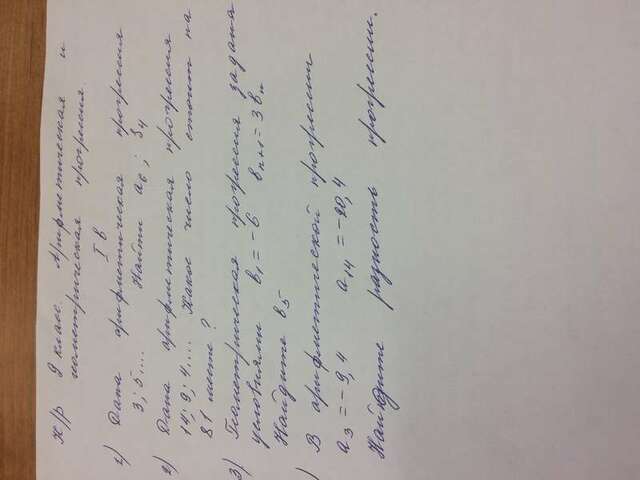 К/р 9 класс. Арифметическая и
геометрическая прогрессия.
I в
1) Дана арифметическая прогрессия
3; 5.... Найти a6; S4
2) Дана арифметическая прогрессия
14; 9; 4.... Какое число стоит на
81 месте?
3) Геометрическая прогрессия задана
условиями b1 = -6 bn+1 = 3bn
Найдите b5
) В арифметической прогрессии
a3 = -9,4 a14 = -20,4
Найдите разность прогрессии.